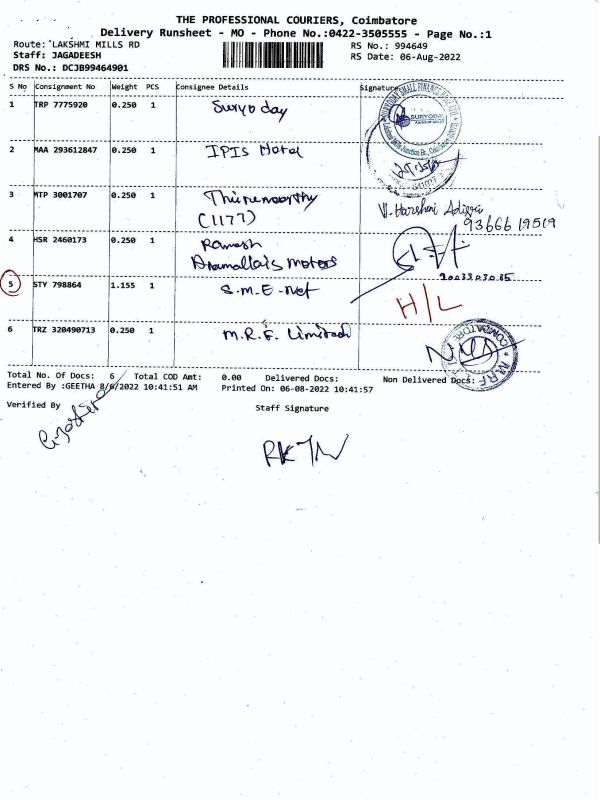 THE PROFESSIONAL COURIERS, Coimbatore
Delivery Runsheet - MO - Phone No.:0422-3505555 - Page No.:1
Route: LAKSHMI MILLS RD RS No.: 994649
Staff: JAGADEESH RS Date: 06-Aug-2022
DRS No.: DCJB99464901
S No Consignment No Weight PCS Consignee Details Signature
1 TRP 7775920 0.250 1 Suryoday
SURYODAY
2 MAA 293612847 0.250 1 IPIS Hotel
3 MTP 3001707 0.250 1 Thirumoorthy V. Harshni
(1177) 9366619519
4 HSR 2460173 0.250 1 Ramesh
Anamallais motors
5 STY 798864 1.155 1 S.M.E-Net H/L
6 TRZ 320490713 0.250 1 M.R.F. Limited
COIMBATORE MRF
Total No. Of Docs: 6 Total COD Amt: 0.00 Delivered Docs: Non Delivered Docs:
Entered By :GEETHA 8/6/2022 10:41:51 AM Printed On: 06-08-2022 10:41:57
Verified By Staff Signature